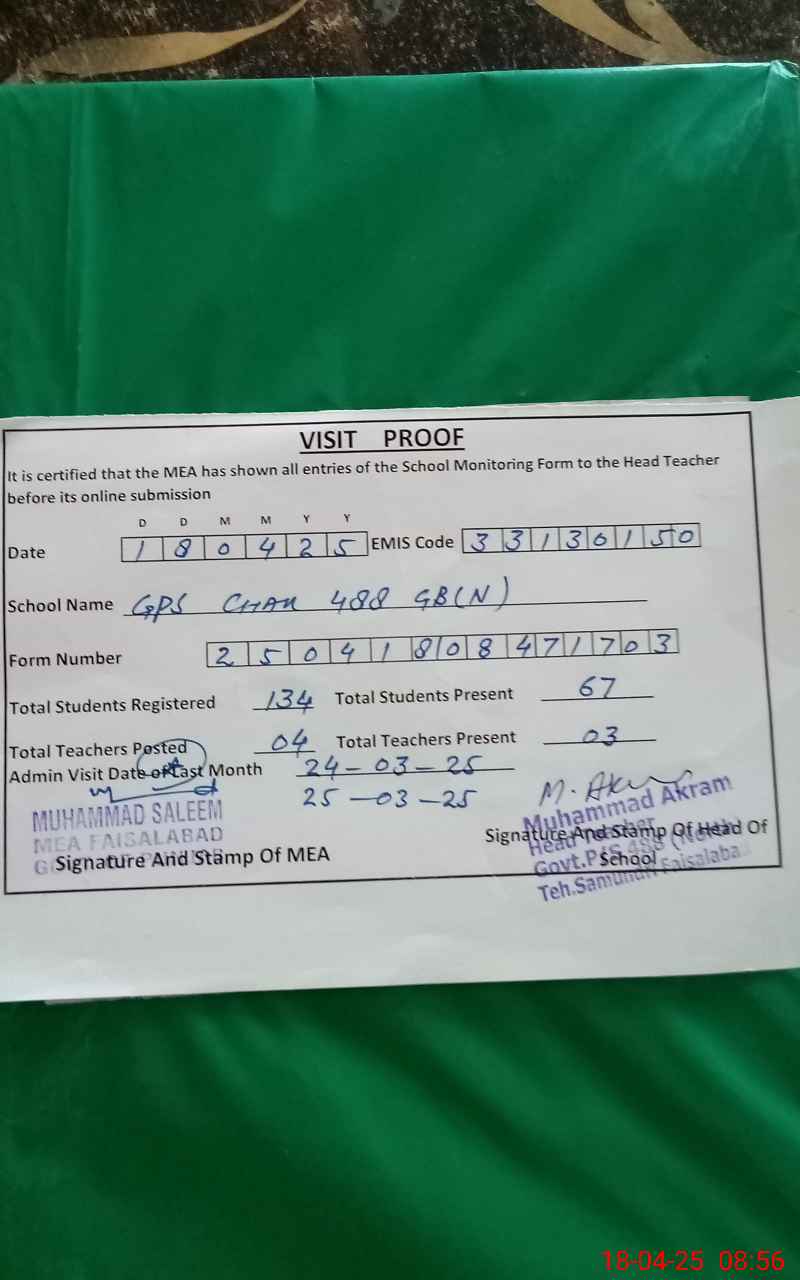 VISIT PROOF
It is certified that the MEA has shown all entries of the School Monitoring Form to the Head Teacher
before its online submission
D D M M Y Y
Date 1 8 0 4 2 5 EMIS Code 3 3 1 3 0 1 5 0
School Name GPS CHAK 488 GB(N)
Form Number 2 5 0 4 1 8 0 8 4 7 1 7 0 3
Total Students Registered 134 Total Students Present 67
Total Teachers Posted 04 Total Teachers Present 03
Admin Visit Date of Last Month 24-03-25
25-03-25
MUHAMMAD SALEEM
MEA FAISALABAD
Signature And Stamp Of MEA
M. Akram
Muhammad Akram
Head Teacher
Signature And Stamp Of Head Of
School
Govt.P/S 488 (North)
Teh.Samundri Faisalaba
18-04-25 08:56